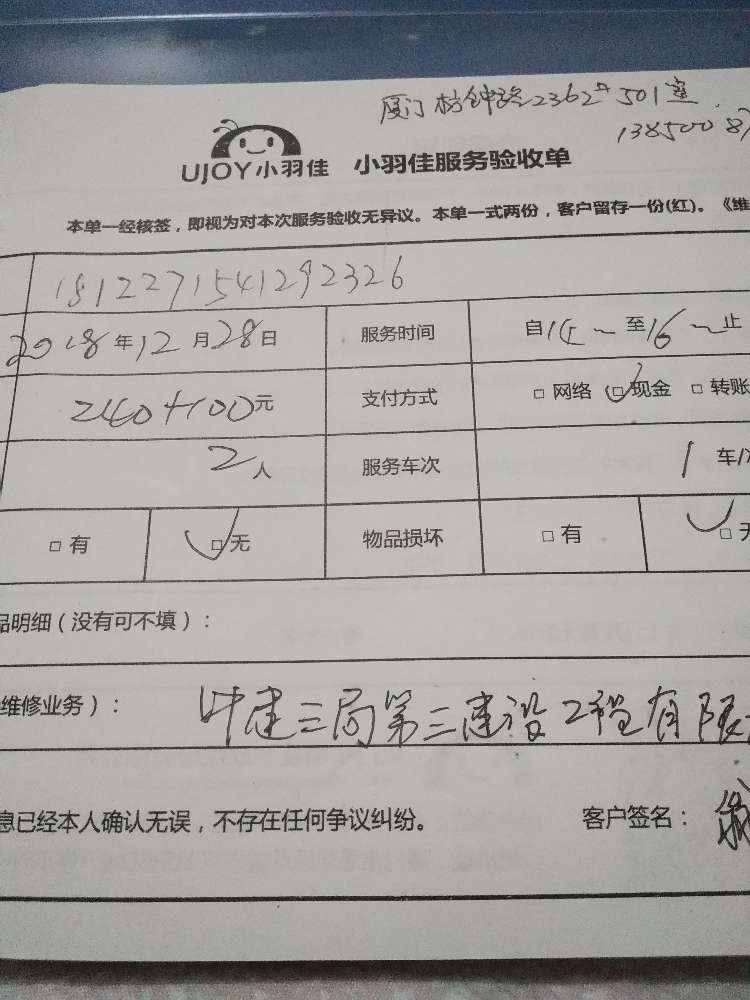 厦门枋钟路2362# 501室
13850087
UJOY小羽佳 小羽佳服务验收单
本单一经核签，即视为对本次服务验收无异议。本单一式两份，客户留存一份(红)。《维
1812271541292326
2018年12月28日 服务时间 自14~至16~止
240+100元 支付方式 □ 网络 □ 现金 □ 转账
2人 服务车次 1 车/
□ 有 □ 无 物品损坏 □ 有 □
品明细（没有可不填）：
维修业务）： 中建三局第三建设工程有限
息已经本人确认无误，不存在任何争议纠纷。 客户签名：